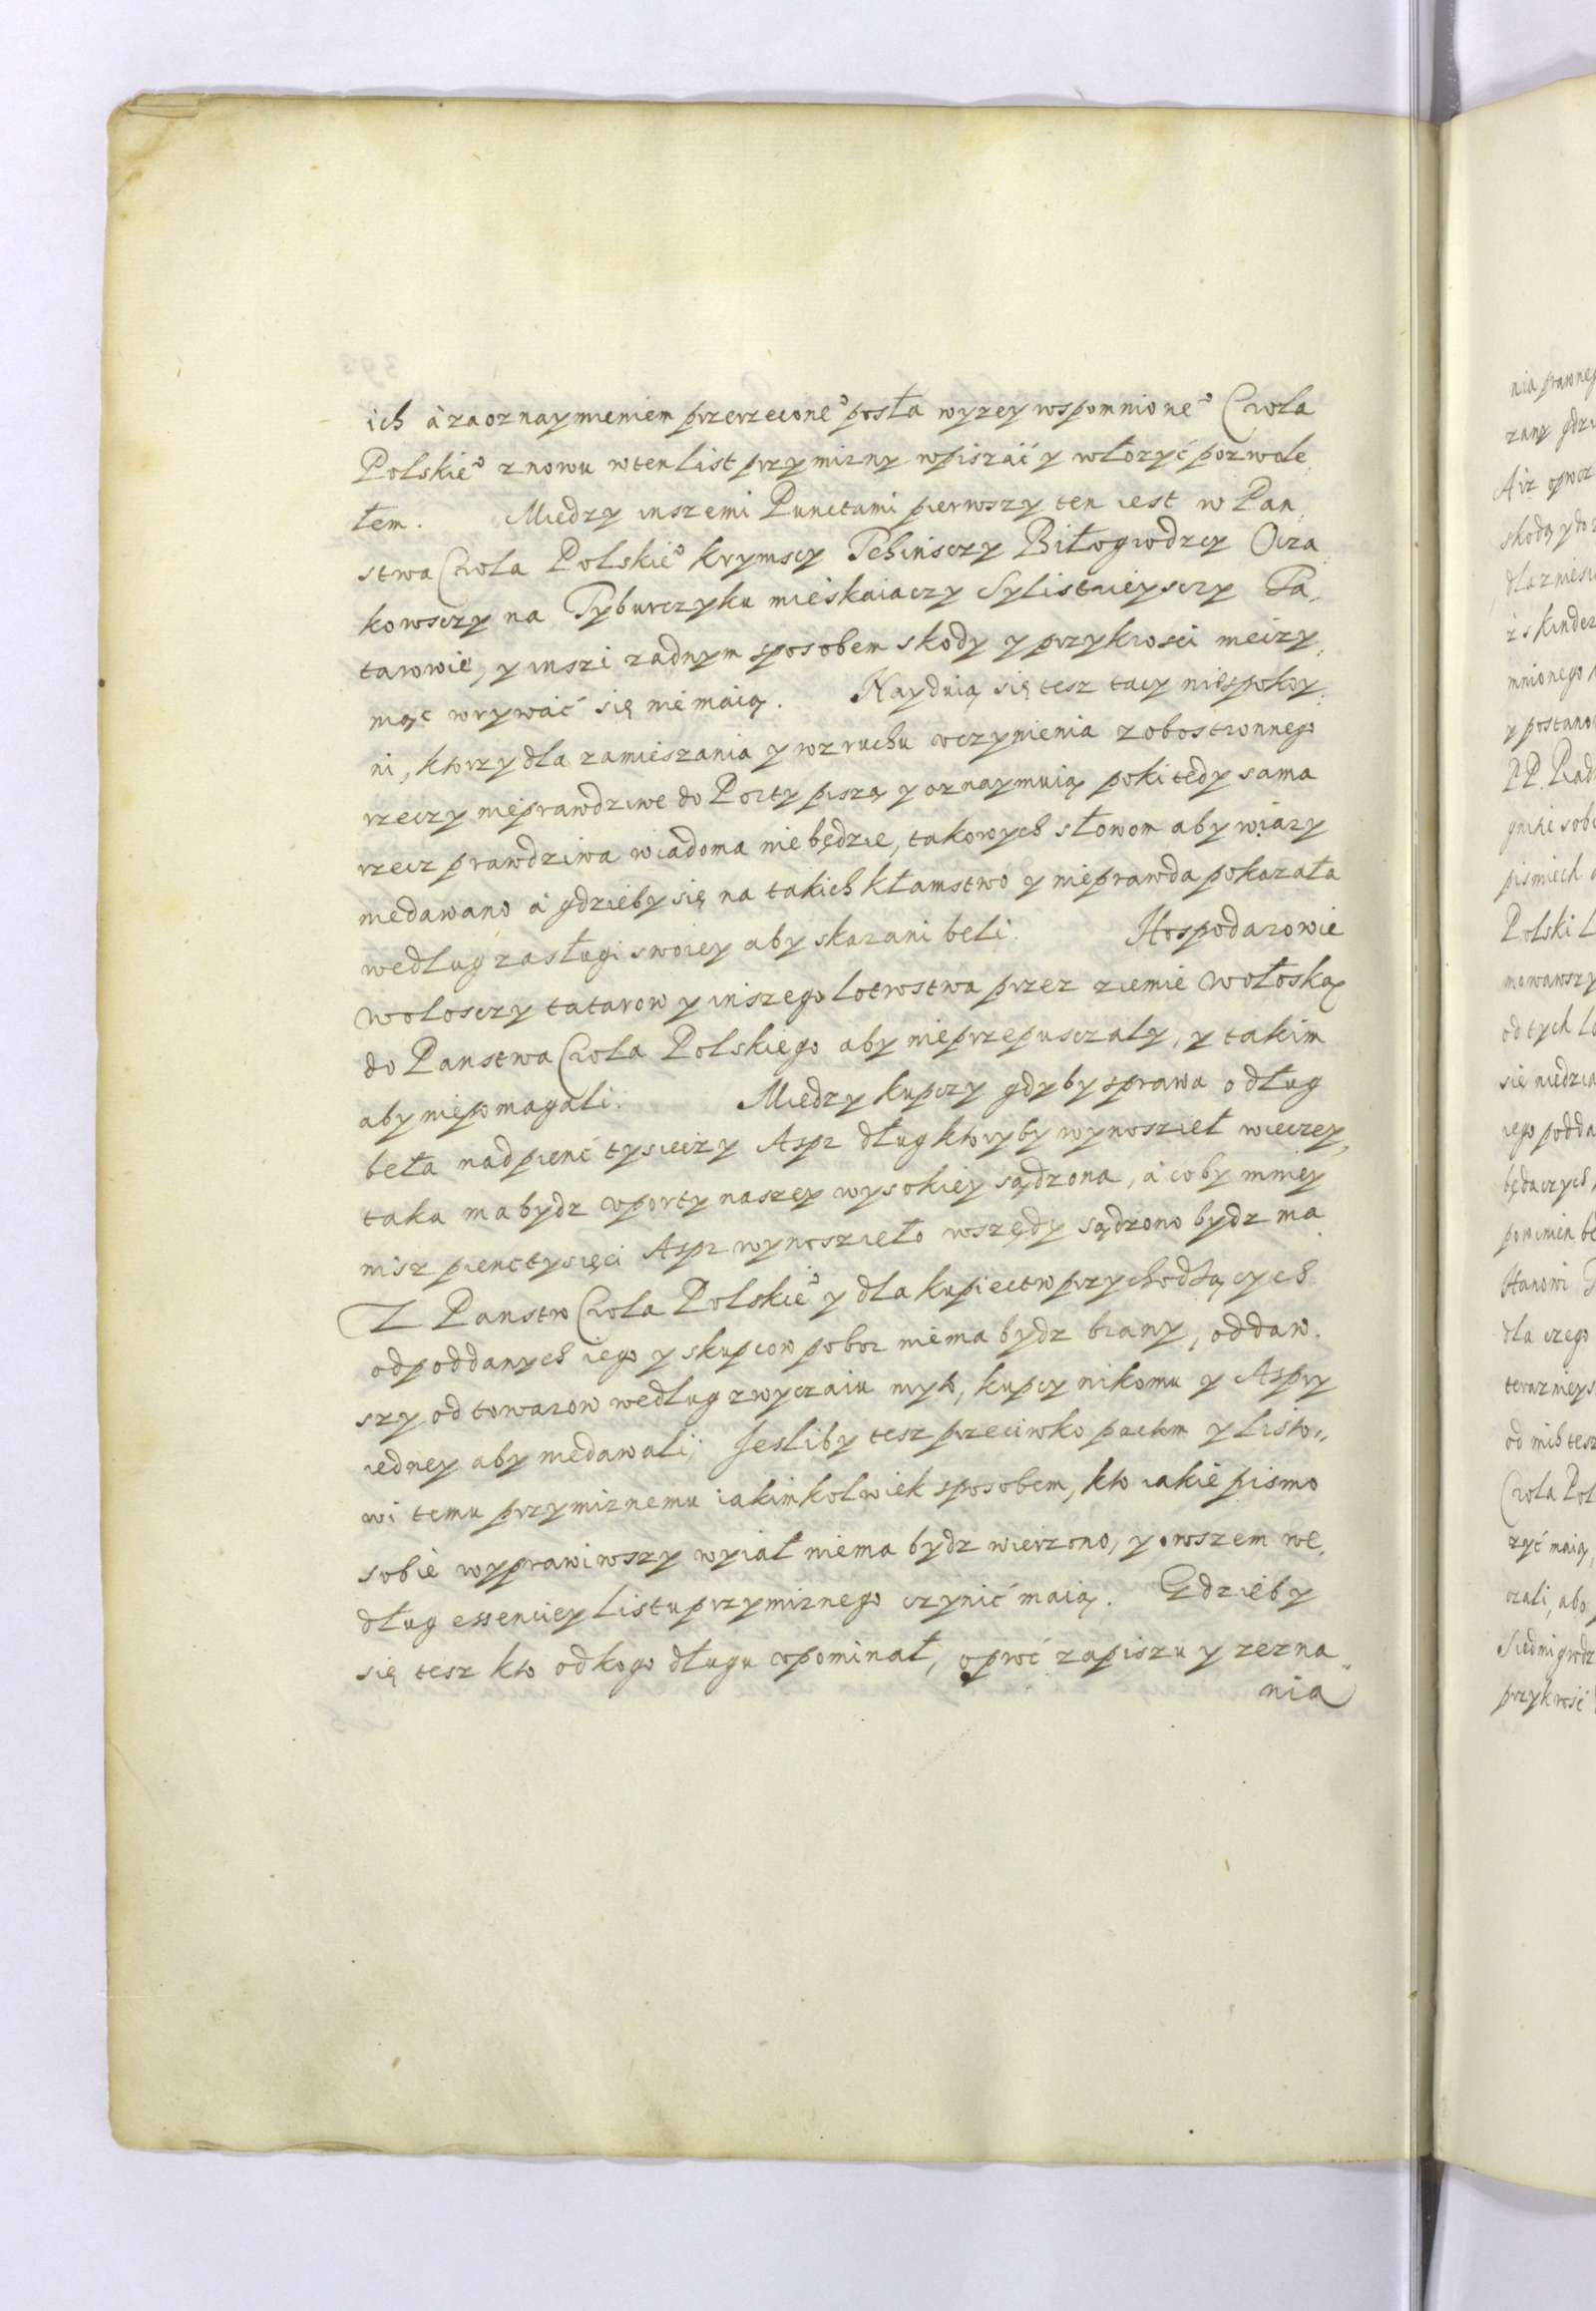 ich à za oznaymieniem przerzeconeº posła wyzey wspomnioneº Crola
Polskieº znowu w ten list przymirny wpiszać y włozyć pozwole,
łem. Miedzy inszemi Punctami pierwszy ten iest w Pan,
stwa Crola Polskieº Krymscy Tehinsczy Biłogrodzcy Ocza,
kowsczy na Tyburczyku mieskaiaczy Sylistrieysczy Ta,
tarowie, y inszi zadnym sposobem skody y przykrosci nieczy,
niąc wrywać się nie maią. Nayduią się tesz tacy niespokoy,
ni, ktorzy dla zamieszania y wzruchu uczynienia z obostronnego
rzeczy nieprawdziwe do Porty piszą y oznaymuią poki tedy sama
rzecz prawdziwa wiadoma nie będzie, takowych słowom aby wiary
niedawano à gdzieby się na takich kłamstwo y nieprawda pokazała
według zasługi swoiey aby skarani beli. Hospodarowie
Wołosczy tatarow y inszego lotrostwa przez ziemie Wołoską
do Panstwa Crola Polskiego aby nieprzepusczały, y takim
aby niepomagali. Miedzy kupczy gdyby sprawa o dług
beła nad pienć tysieczy Aspr dług ktoryby wynosziel wieczey,
taka ma bydz w porty naszey wysokiey sądzona, à coby mniey
nisz pienc tysięci Aspr wynoszieło wszędy sądzono bydz ma
Z Panstw Crola Polskieº y dla kupiectw przychodzących
od poddanych iego y skupcow pobor niema bydz brany, oddaw,
szy od towarow według zwyczaiu myto, kupcy nikomu y Aspry
iedney aby niedawali; Jesliby tesz przeciwko pactom y listo,,
wi temu przymirnemu iakimkolwiek sposobem, kto iakie pismo
sobie wyprawiwszy wyiał niema bydz wierzono, y owszem we,
dług essenciey listu przymirnego czynić maią. Gdzieby
się tesz kto od kogo długu upominał, oproć zapiszu y zezna,,
nia